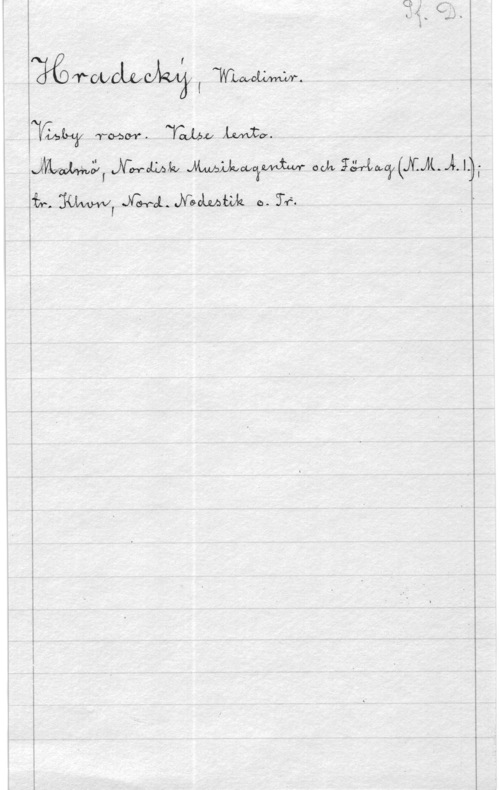 K. D.
Hradecký, Wladimir.
Visby rosor. Valse lento.
Malmö, Nordisk Musikagentur och Förlag (N.M.A.1.);
tr. Khvn, Nord. Nodestik o. Tr.